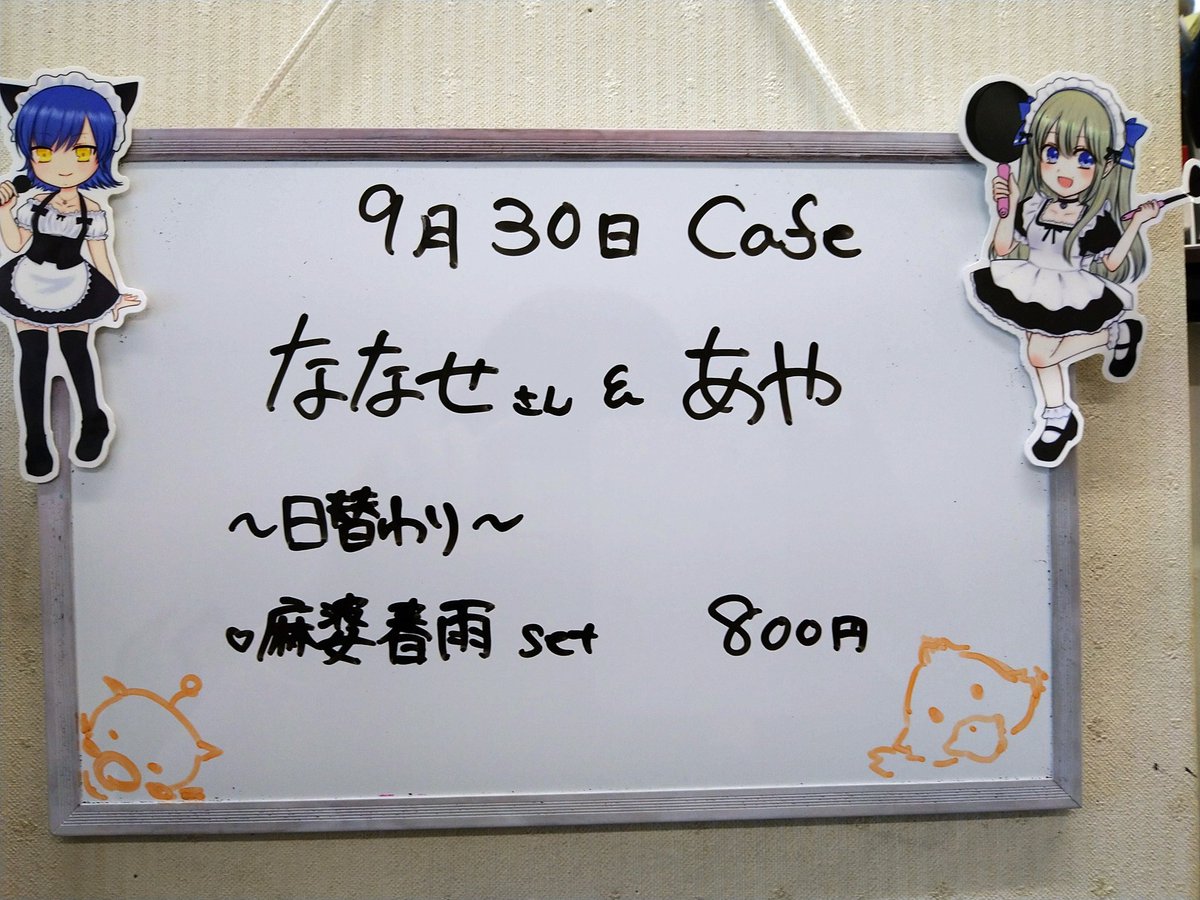 9月30日 Cafe
ななせさん & あや
～日替わり～
♡麻婆春雨 set 800円